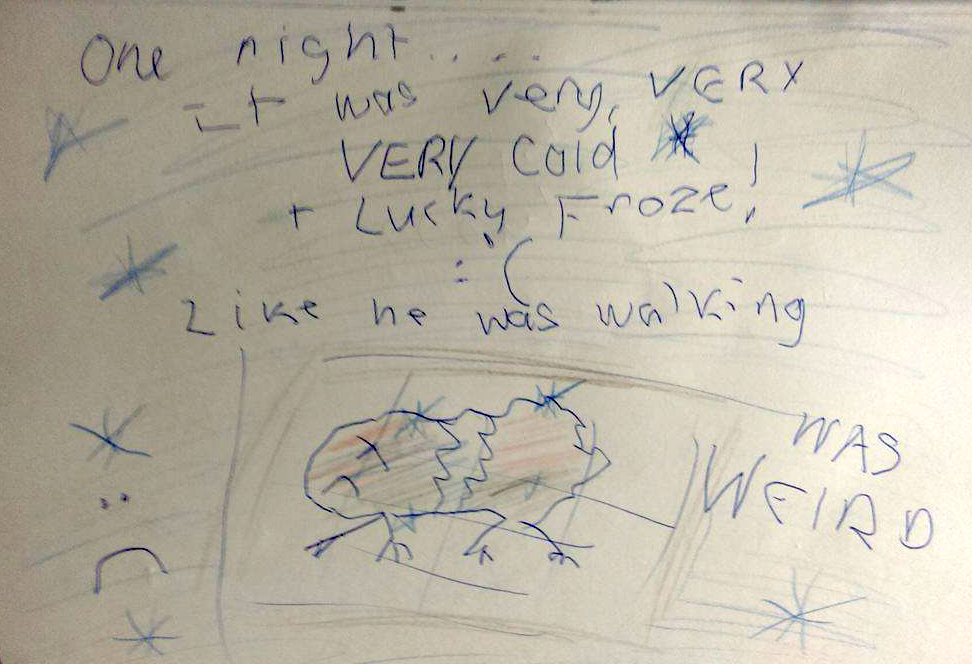 One night......
It was very, VERY
VERY Cold !
+ Lucky Froze!
:'(
Like he was walking
WAS
WEIRD